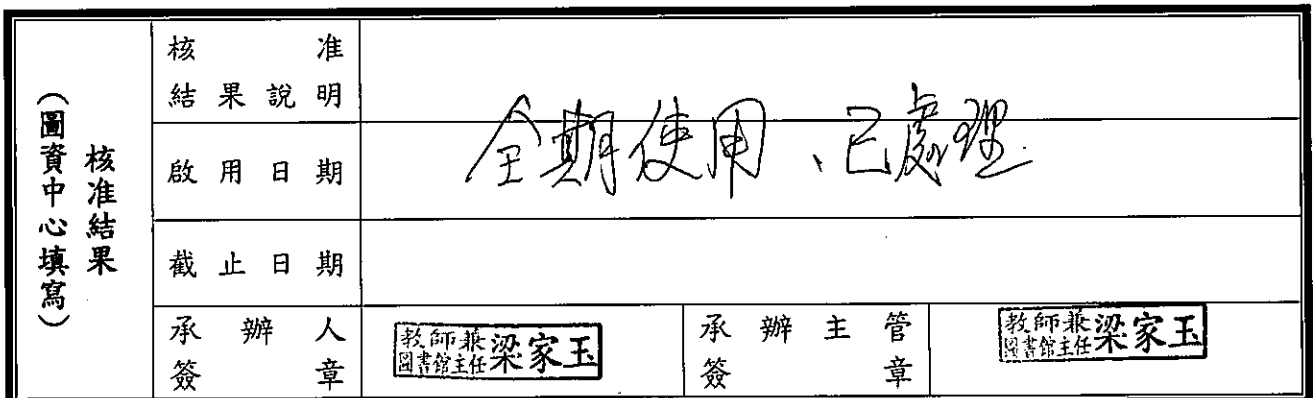 核准結果
（圖資中心填寫）
核准
結果說明
全期使用、已處理
啟用日期
截止日期
承辦人
簽章
教師兼
圖書館主任
梁家玉
承辦主管
簽章
教師兼
圖書館主任
梁家玉